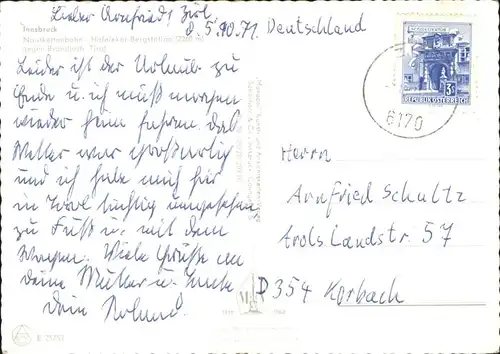 Lieber Arnfried! Zirl
d. 5.10.71. Deutschland
Innsbruck
Nordkettenbahn - Hafelekar-Bergstation
gegen Brandjoch Tirol
Leider ist der Urlaub zu
Ende u. ich muß morgen
wieder heim fahren. das
Wetter war großartig
und ich habe mich hier
in Zirl tüchtig umgesehen
zu Fuß u. mit dem
Wagen. Viele Grüße an
deine Mutter u.
dein
REPUBLIK ÖSTERREICH
6170
Herrn
Arnfried Schultz
Arols Landstr. 57
D 354 Korbach